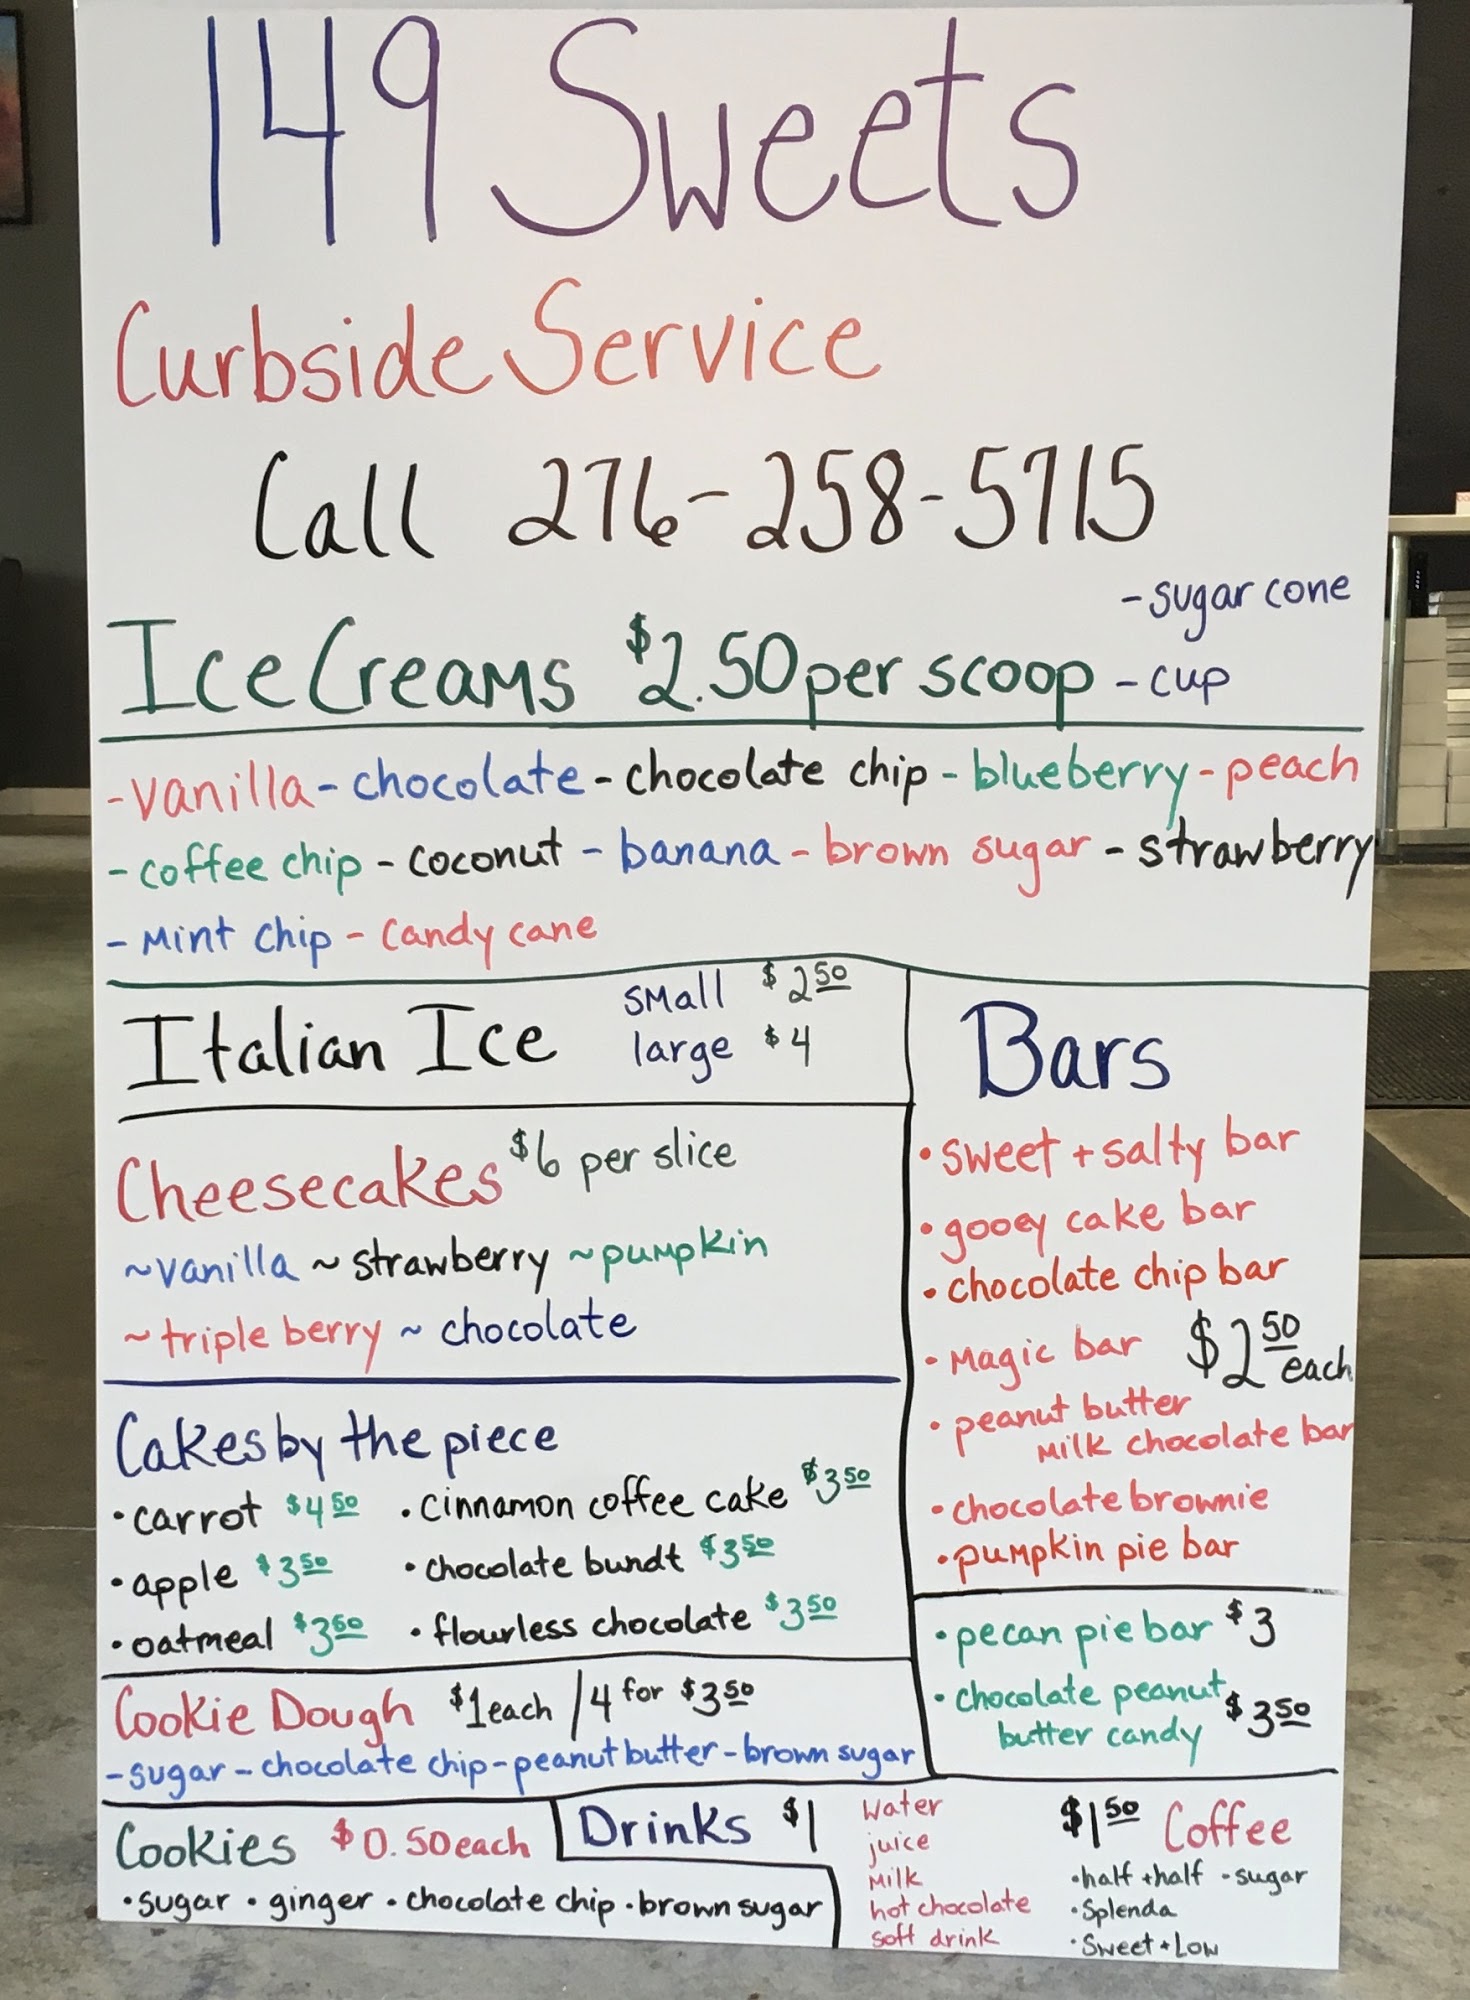 149 Sweets
Curbside Service
Call 276-258-5715
Ice Creams $2.50 per scoop
- sugar cone
- cup
- vanilla - chocolate - chocolate chip - blueberry - peach
- coffee chip - coconut - banana - brown sugar - strawberry
- Mint chip - candy cane
Italian Ice
small $2.50
large $4
Cheesecakes $6 per slice
~vanilla ~strawberry ~pumpkin
~triple berry ~ chocolate
Cakes by the piece
• carrot $4.50 • cinnamon coffee cake $3.50
• apple $3.50 • chocolate bundt $3.50
• oatmeal $3.50 • flourless chocolate $3.50
Cookie Dough $1 each / 4 for $3.50
- sugar - chocolate chip - peanut butter - brown sugar
Cookies $0.50 each
• sugar • ginger • chocolate chip • brown sugar
Bars
• sweet + salty bar
• gooey cake bar
• chocolate chip bar
• Magic bar $2.50 each
• peanut butter
milk chocolate bar
• chocolate brownie
• pumpkin pie bar
• pecan pie bar $3
• chocolate peanut
butter candy $3.50
Drinks $1
water
juice
milk
hot chocolate
soft drink
$1.50 Coffee
• half + half - sugar
• Splenda
• Sweet + Low